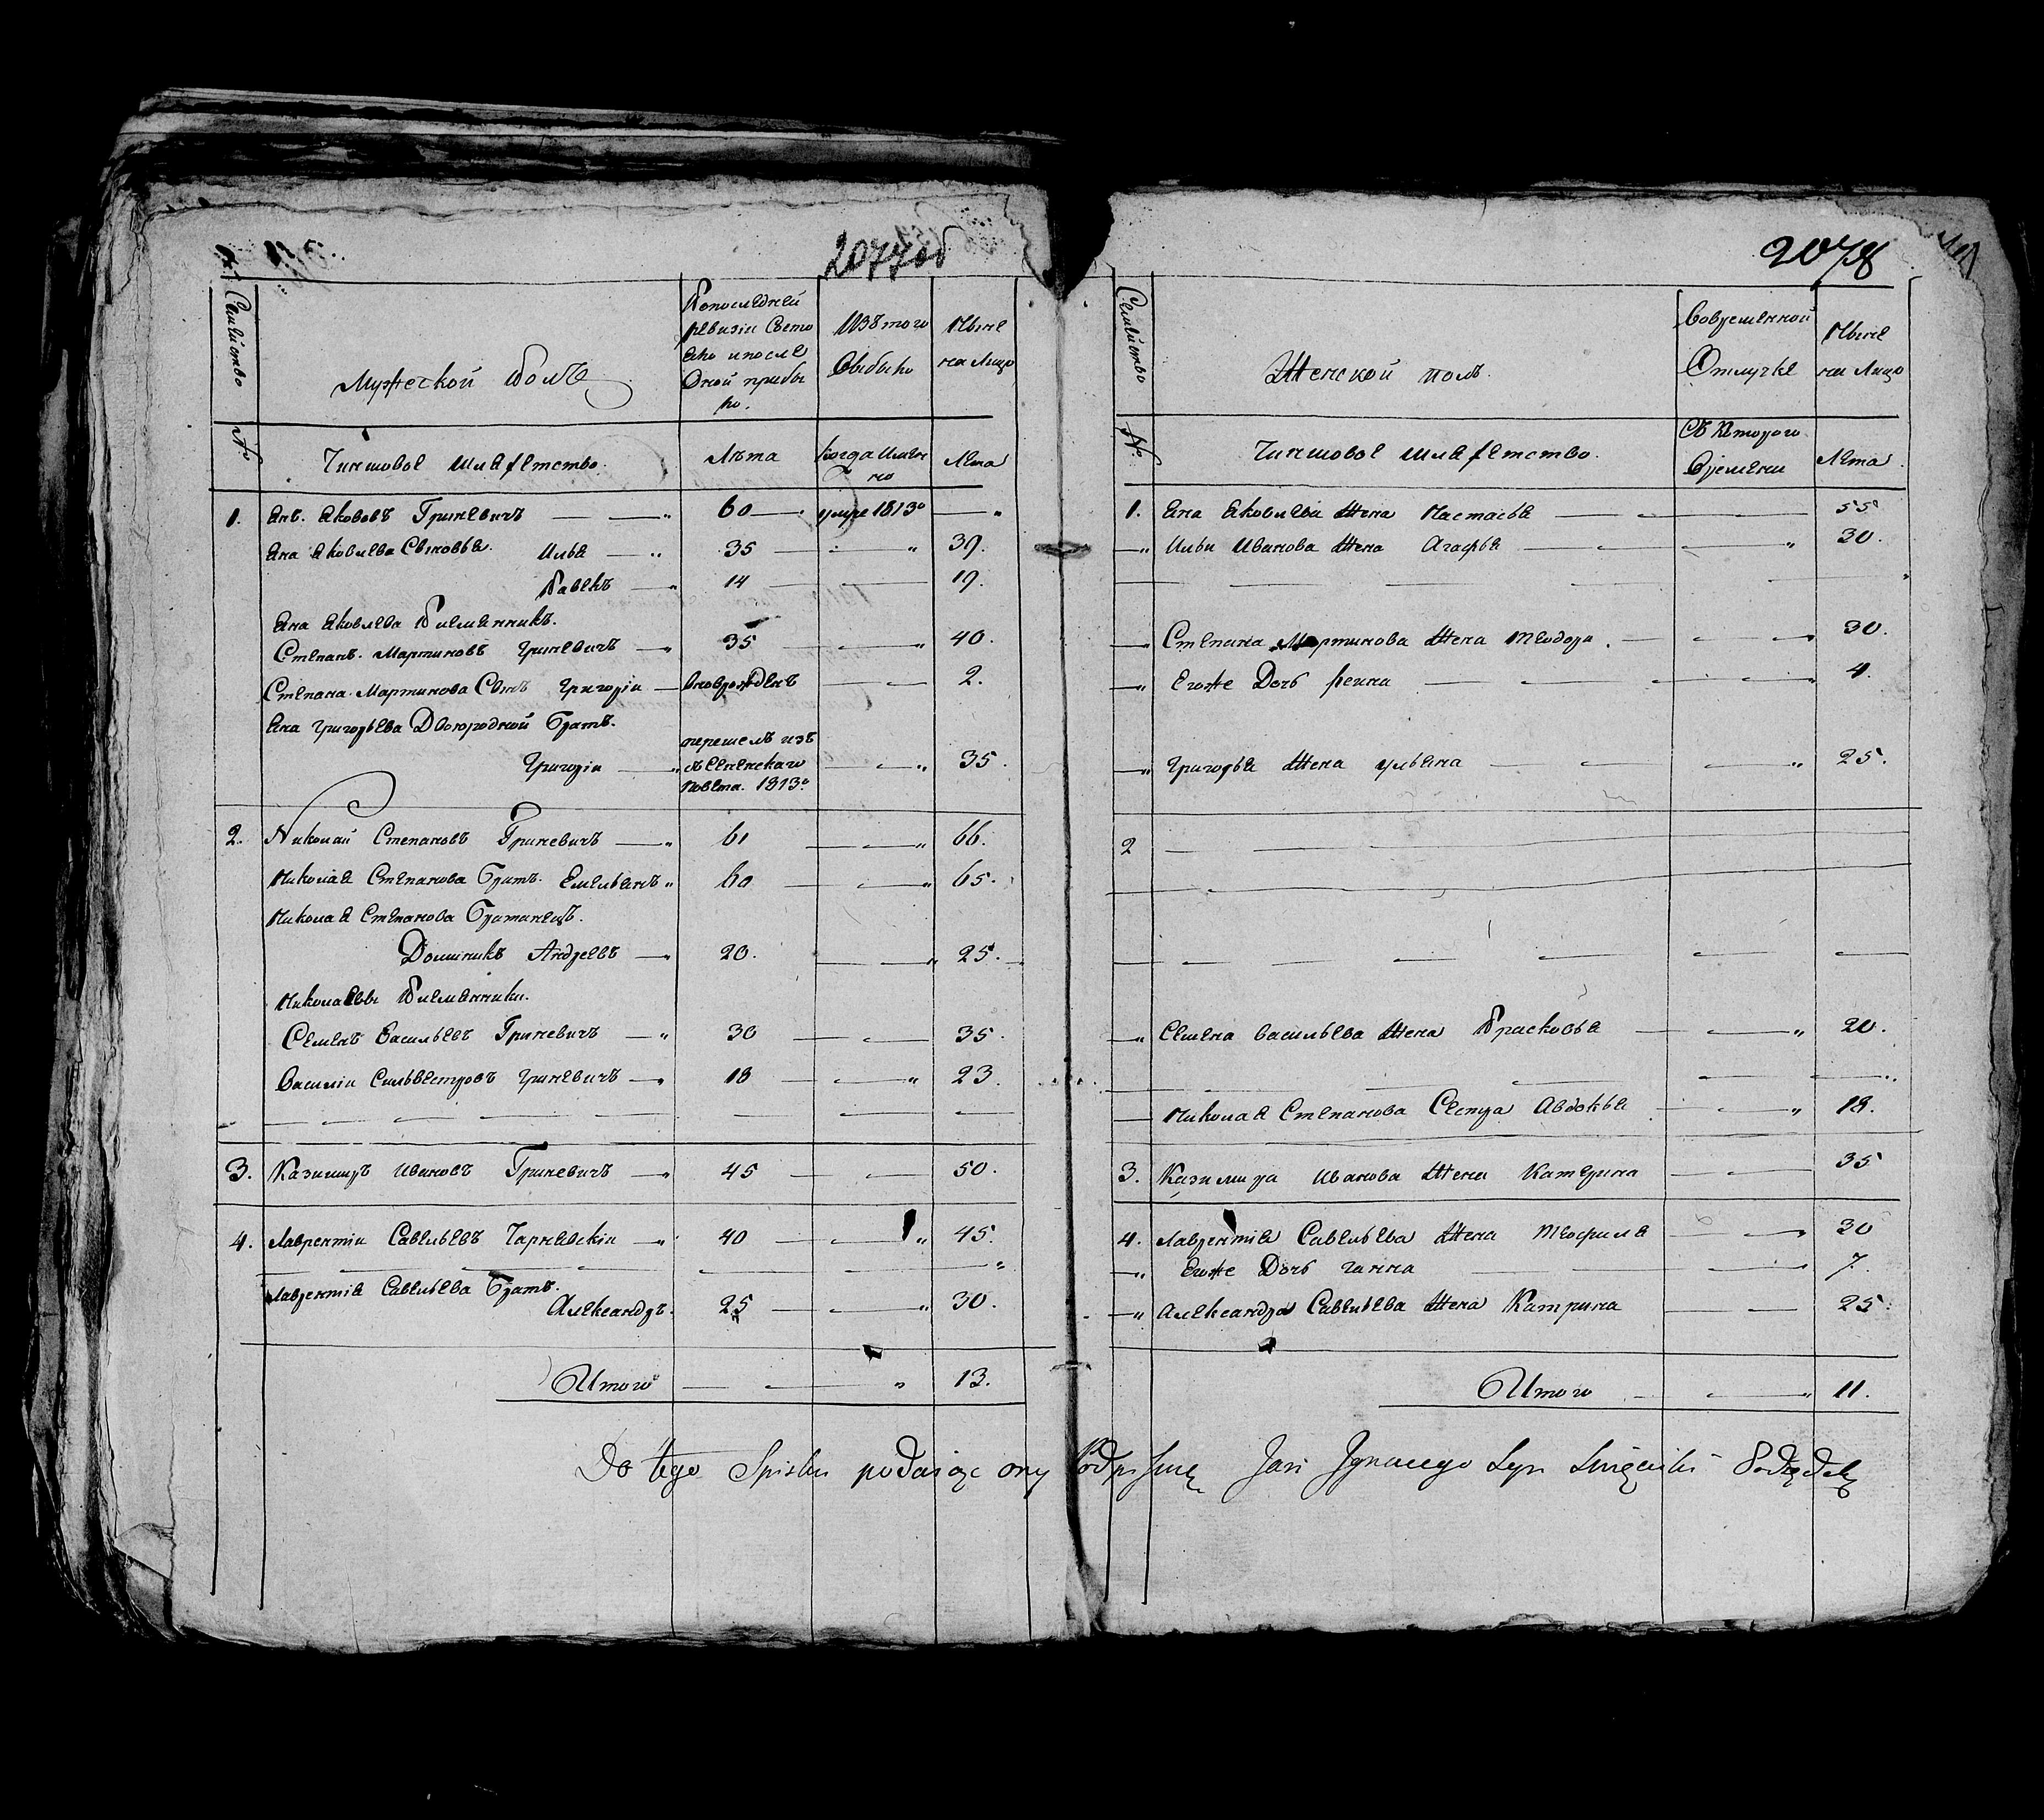 2077об
Семейство
Мужеской полъ
Попоследней
ревизiи Сѣто
яло ипосле
Оной прибы
ло.
Изътого
Овыбыло
Ныне
на Лицо
№
Чиншовое шляхетство.
Лѣта
Когда Имян
но
Лета
1. Янъ Яковъ Гриневичъ — 60 — умре 1813о —
Яна Яковлева Сыновья. Илья — 35 — 39.
Павелъ — 14 — 19.
Яна Яковлева Племянникъ.
Степанъ Мартиновъ Гриневичъ — 35 — 40.
Степана Мартинова Сынъ Григорiи — вноврожденъ — 2.
Яна Григорьева Двоюродной Братъ.
Григорiи — перешелъ изъ — 35.
повета. 1813о
2. Николай Степановъ Гриневичъ — 61 — 66.
Николая Степанова Братъ. Емельянъ 60 — 65.
Николая Степанова Братанецъ.
Доминикъ Андреевъ — 20. — 25.
Николаевы Племянники.
Семенъ Васильевъ Гриневичъ — 30 — 35.
Василiи Сильвестровъ Гриневичъ — 18 — 23.
3. Казимиръ Ивановъ Гриневичъ — 45 — 50.
4. Лаврентiи Савельевъ Чарневскiи — 40 — 45.
Лаврентiя Савельева Братъ.
Александръ. 25 — 30.
Итого — 13.
2078
Семейство
Женской полъ.
Вовременной
Отлучке
Ныне
на Лицо
№
Чиншовое шляхетство.
Съ Которого
Времени
Лета
1. Яна Яковлева Жена Настасья — 55
Ильи Иванова Жена Агафья — 30.
Степана Мартинова Жена Теодора. — 30.
Егоже Дочь — 4.
Григорья Жена Ульяна — 25.
2
Семена Васильева Жена Прасковья — 20.
Николая Степанова Сестра Авдокья — 18.
3. Казимира Иванова Жена Катерина — 35
4. Лаврентiя Савельева Жена Теофиля — 30
Егоже Дочь Ганна — 7.
Александра Савельева Жена Катрина — 25.
Итого — 11.
Do tego Spisku podaiąc ony Podpisuię Jan Ignacego Syn